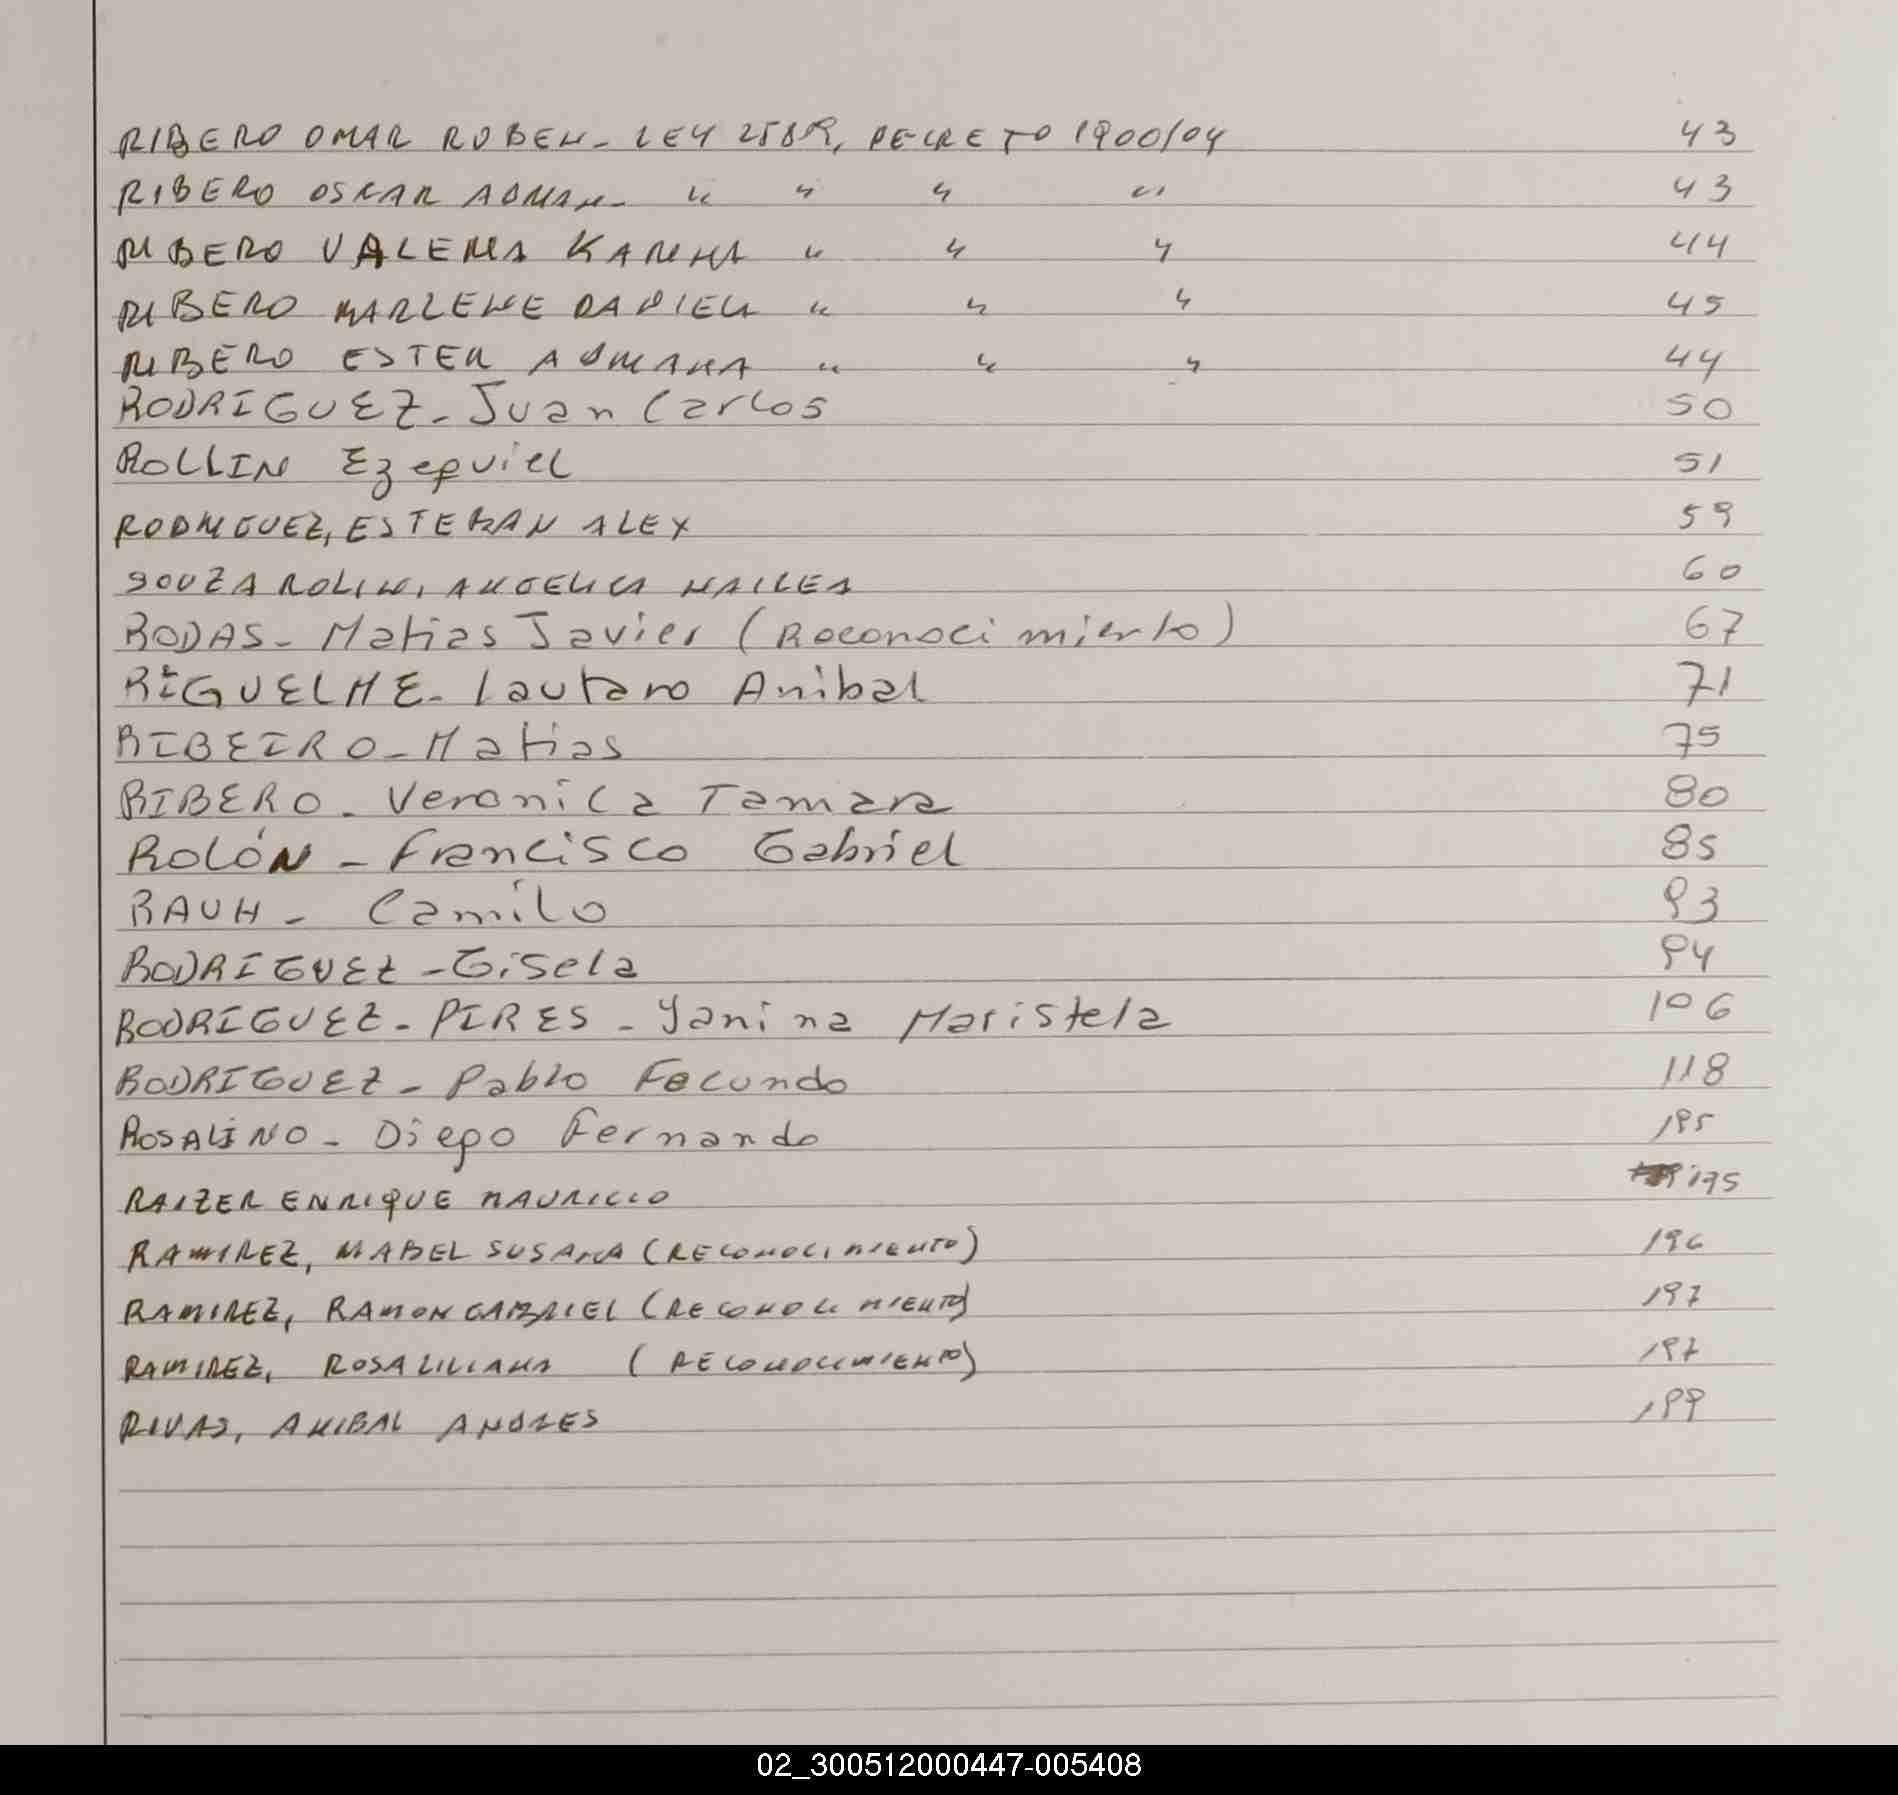 RIBERO OMAR RUBEN - LEY 25819, DECRETO 1900/04 43
RIBERO OSCAR ADRIAN - " " " " 43
RIBERO VALERIA KARINA " " " 44
RIBERO MARLENE DANIELA " " " 45
RIBERO ESTER ADRIANA " " " 44
RODRIGUEZ - Juan Carlos 50
ROLLIN Ezequiel 51
RODRIGUEZ, ESTEBAN ALEX 59
SOUZA ROLIN, ANGELICA 60
RODAS - Matias Javier (Reconocimiento) 67
RIGUELME - Lautaro Anibal 71
RIBEIRO - Matias 75
RIBERO - Veronica Tamara 80
ROLÓN - Francisco Gabriel 85
RAUH - Camilo 93
RODRIGUEZ - Gisela 94
RODRIGUEZ - PIRES - Yanina Maristela 106
RODRIGUEZ - Pablo Facundo 118
ROSALINO - Diego Fernando 195
RAIZER ENRIQUE MAURICIO 195
RAMIREZ, MABEL SUSANA (RECONOCIMIENTO) 196
RAMIREZ, RAMON GABRIEL (RECONOCIMIENTO) 197
RAMIREZ, ROSA LILIANA (RECONOCIMIENTO) 197
RIVAS, ANIBAL ANDRES 199
02_300512000447-005408